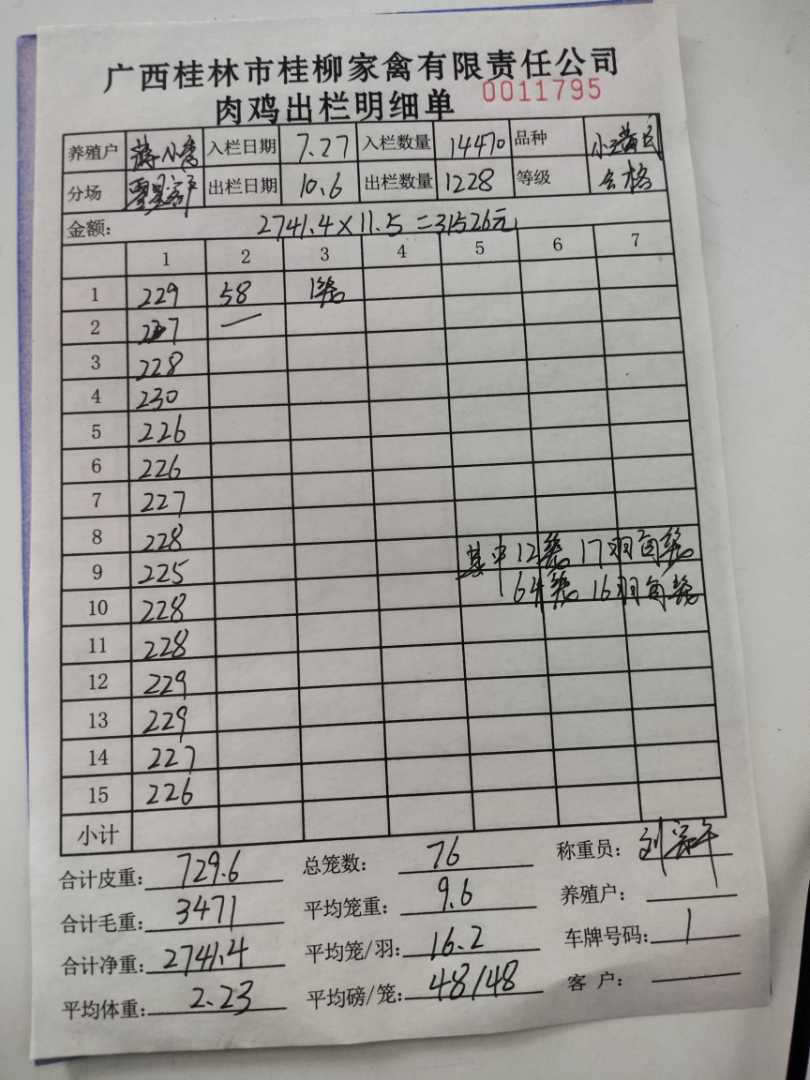 广西桂林市桂柳家禽有限责任公司
肉鸡出栏明细单 0011795
养殖户 蒋小 入栏日期 7.27 入栏数量 14470 品种 小黄
分场 出栏日期 10.6 出栏数量 1228 等级 合格
金额: 2741.4×11.5=31526元
1 2 3 4 5 6 7
1 229 58 1笼
2 227 —
3 228
4 230
5 226
6 226
7 227
8 228 其中12笼17羽每笼
9 225 64笼16羽每笼
10 228
11 228
12 229
13 229
14 227
15 226
小计
合计皮重: 729.6 总笼数: 76 称重员: 刘
合计毛重: 3471 平均笼重: 9.6 养殖户:
合计净重: 2741.4 平均笼/羽: 16.2 车牌号码: 1
平均体重: 2.23 平均磅/笼: 48/48 客 户: